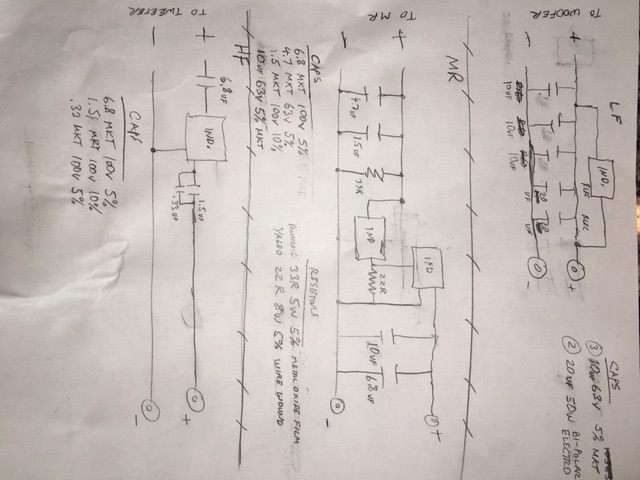 LF
TO WOOFER
+
-
IND.
10UF
10UF
10UF
20
UF
20
UF
+
-
CAPS
③ 10UF 63V 5% MKT
② 20UF 50V BI-POLAR
ELECTRO
MR
TO MR
+
-
IND
IND
22R
4.7UF
1.5UF
33R
10UF
6.8UF
+
-
CAPS
6.8 MKT 100V 5%
4.7 MKT 63V 5%
1.5 MKT 100V 10%
10UF 63V 5% MKT
RESISTORS
33R 5W 5% METAL OXIDE FILM
YAGEO 22R 8W 5% WIRE WOUND
HF
TO TWEETER
+
-
6.8UF
IND.
1.5UF
.33UF
+
-
CAPS
6.8 MKT 100V 5%
1.5 MKT 100V 10%
.33 MKT 100V 5%